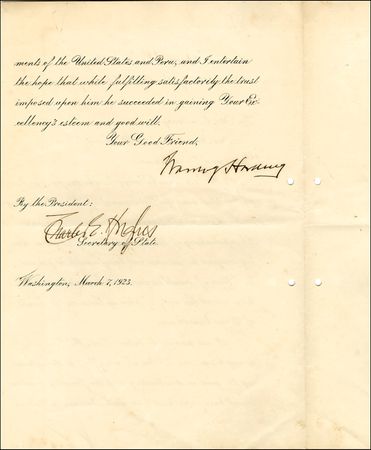 ments of the United States and Peru, and I entertain
the hope that while fulfilling satisfactorily the trust
imposed upon him he succeeded in gaining Your Ex-
cellency's esteem and good will.
Your Good Friend,
Warren G Harding
By the President:
Charles E. Hughes
Secretary of State.
Washington, March 7, 1923.